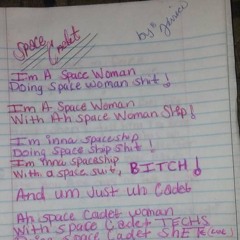 Space Cadet
by: Jessica
I'm A Space Woman
Doing space woman shit!
I'm A space Woman
With Ah space Woman Ship!
I'm inna spaceship
Doing space ship shit!
I'm inna spaceship
With a space suit, BITCH!
And um Just uh Cadet
Ah space Cadet woman
With space Cadet TECHS
Space Cadet